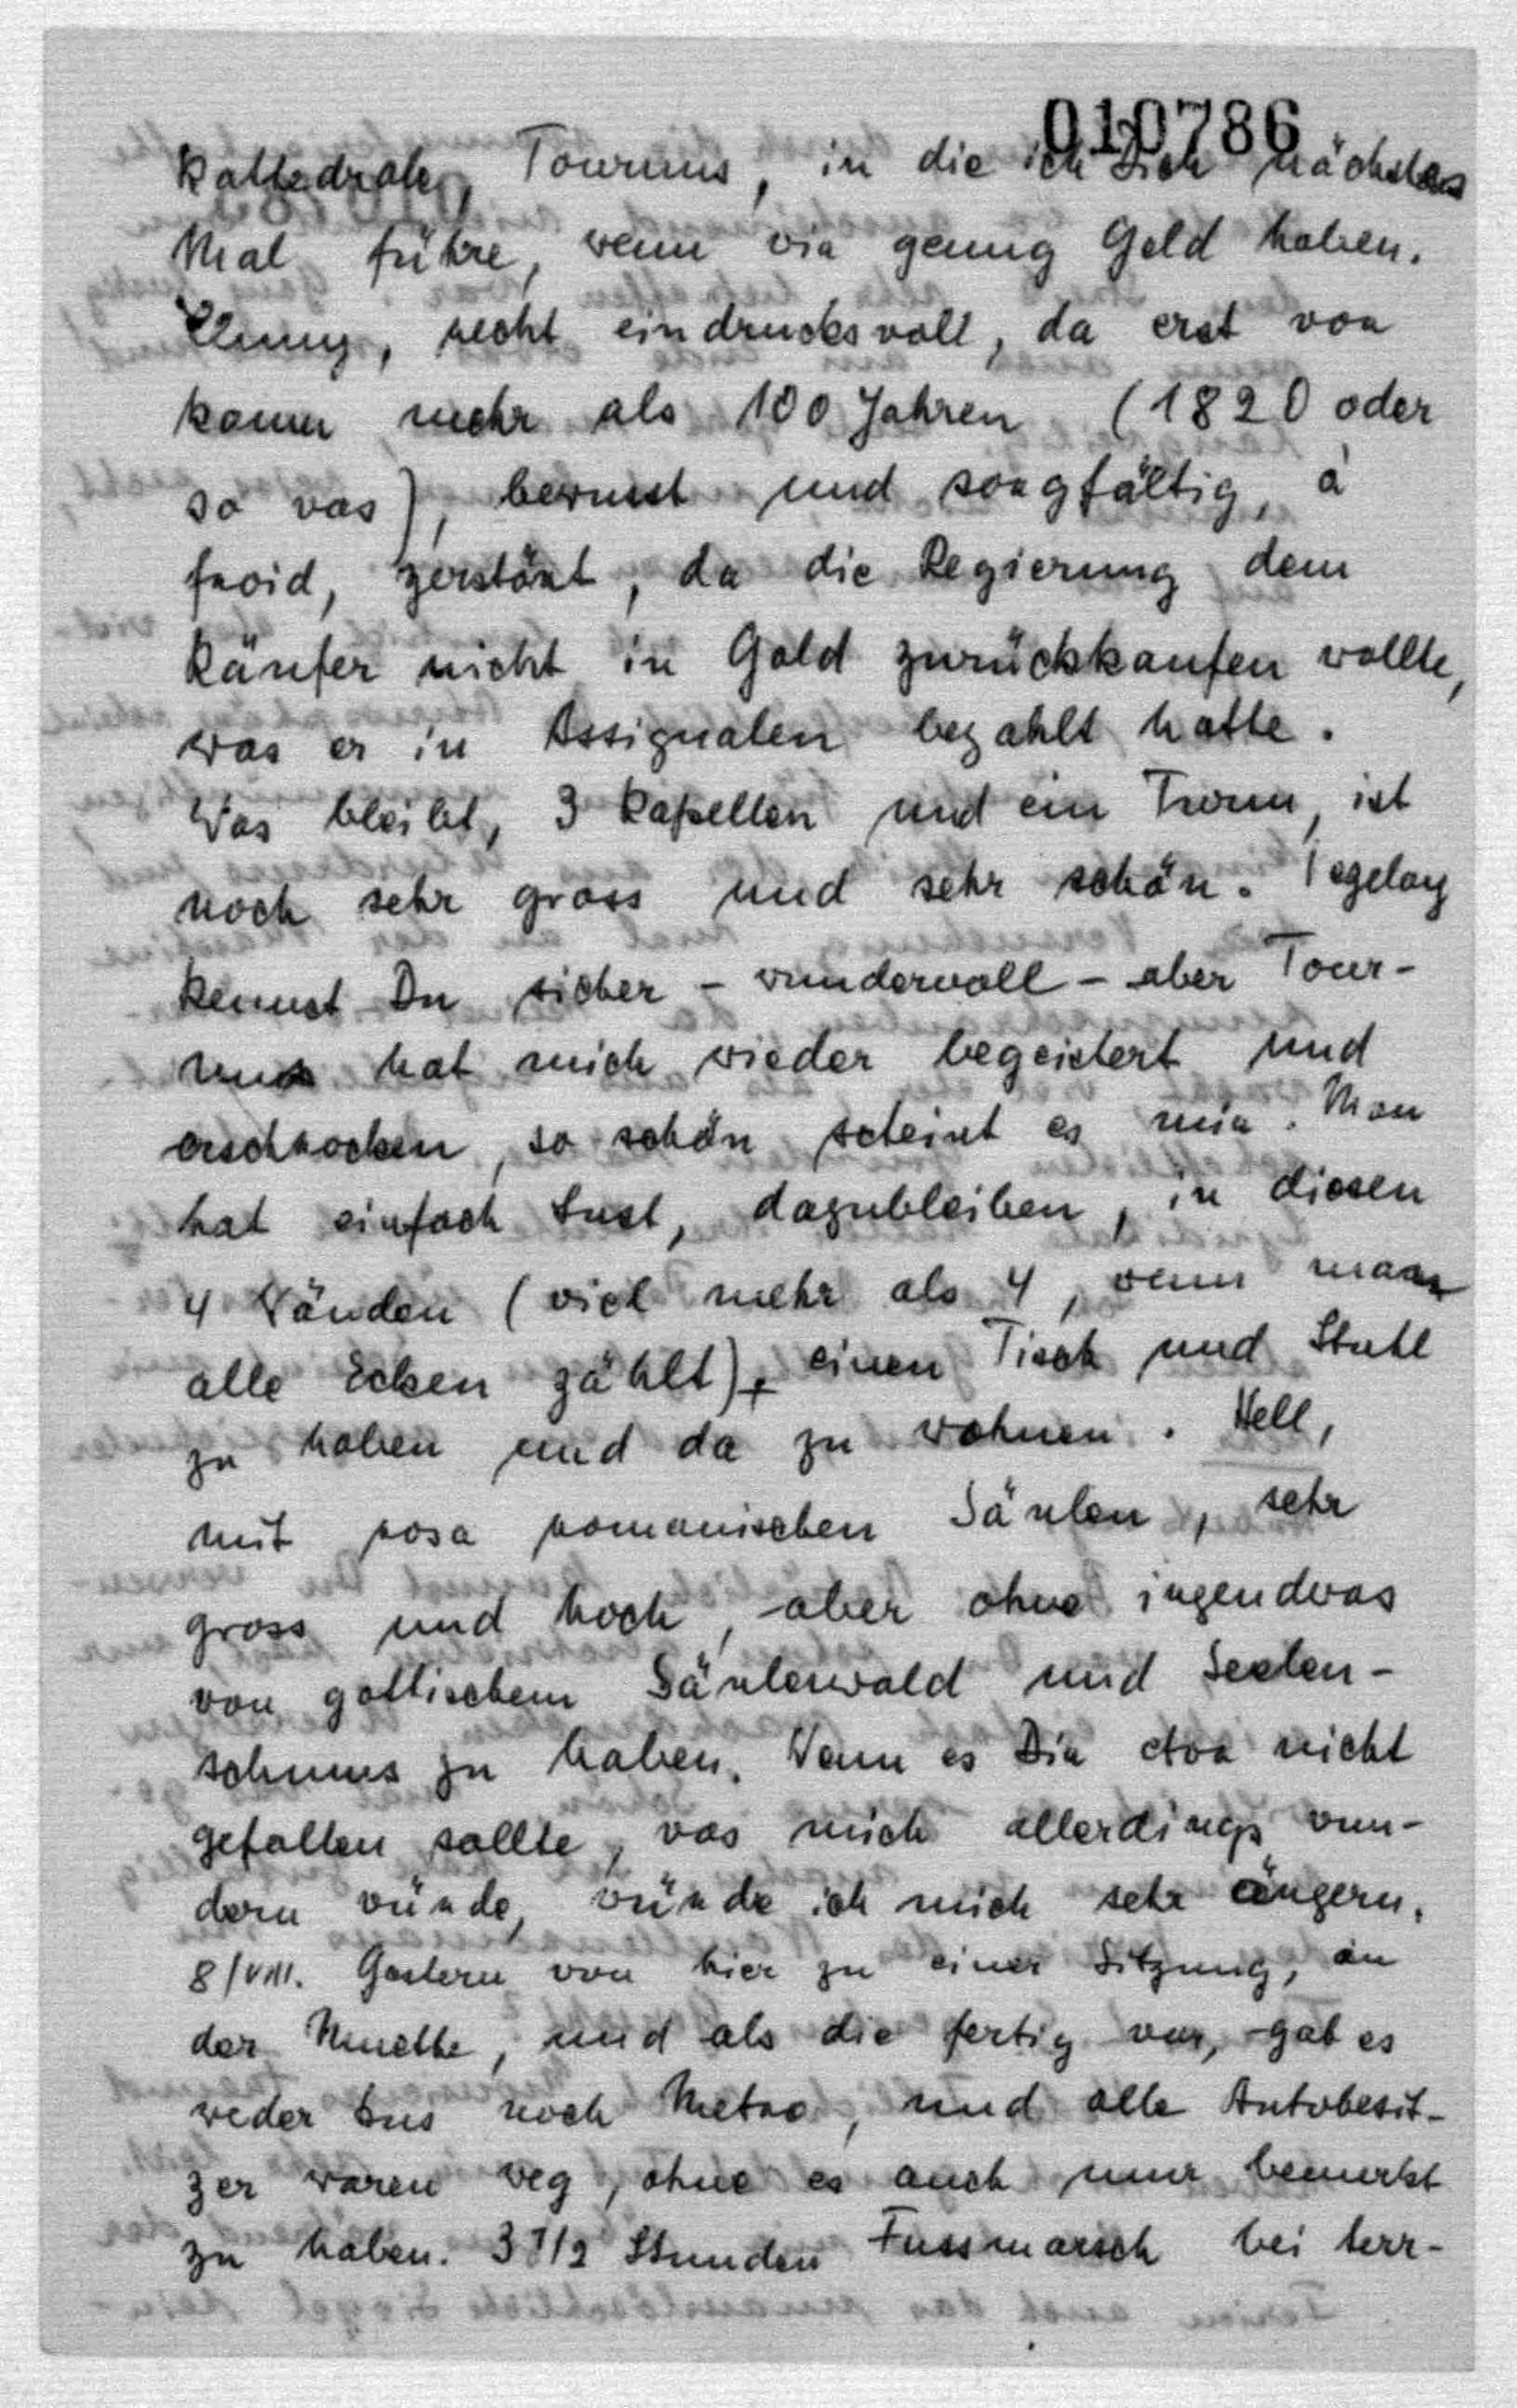 010786
Kathedrale, Tournus, in die ich Dich nächstes
Mal führe, wenn wir genug Geld haben.
Cluny, recht eindrucksvoll, da erst vor
kaum mehr als 100 Jahren (1820 oder
so was), bewusst und sorgfältig, à
froid, zerstört, da die Regierung dem
Käufer nicht in Gold zurückkaufen wollte,
was er in Assignaten bezahlt hatte.
Was bleibt, 3 Kapellen und ein Turm, ist
noch sehr gross und sehr schön.
kennst Du sicher - wundervoll - aber Tour-
nus hat mich wieder begeistert und
erschrocken, so schön scheint es mir. Man
hat einfach Lust, dazubleiben, in diesen
4 Wänden (viel mehr als 4, wenn man
alle Ecken zählt), einen Tisch und Stuhl
zu haben und da zu wohnen. Hell,
mit rosa romanischen Säulen, sehr
gross und hoch, aber ohne irgendwas
von gottischem Säulenwald und Seelen-
schmus zu haben. Wenn es Dir etwa nicht
gefallen sollte, was mich allerdings wun-
dern würde, würde ich mich sehr ärgern.
8/VIII. Gestern von hier zu einer Sitzung, an
der Muette, und als die fertig war, gab es
weder Bus noch Metro, und alle Autobesit-
zer waren weg, ohne es auch nur bemerkt
zu haben. 3 1/2 Stunden Fussmarsch bei herr-